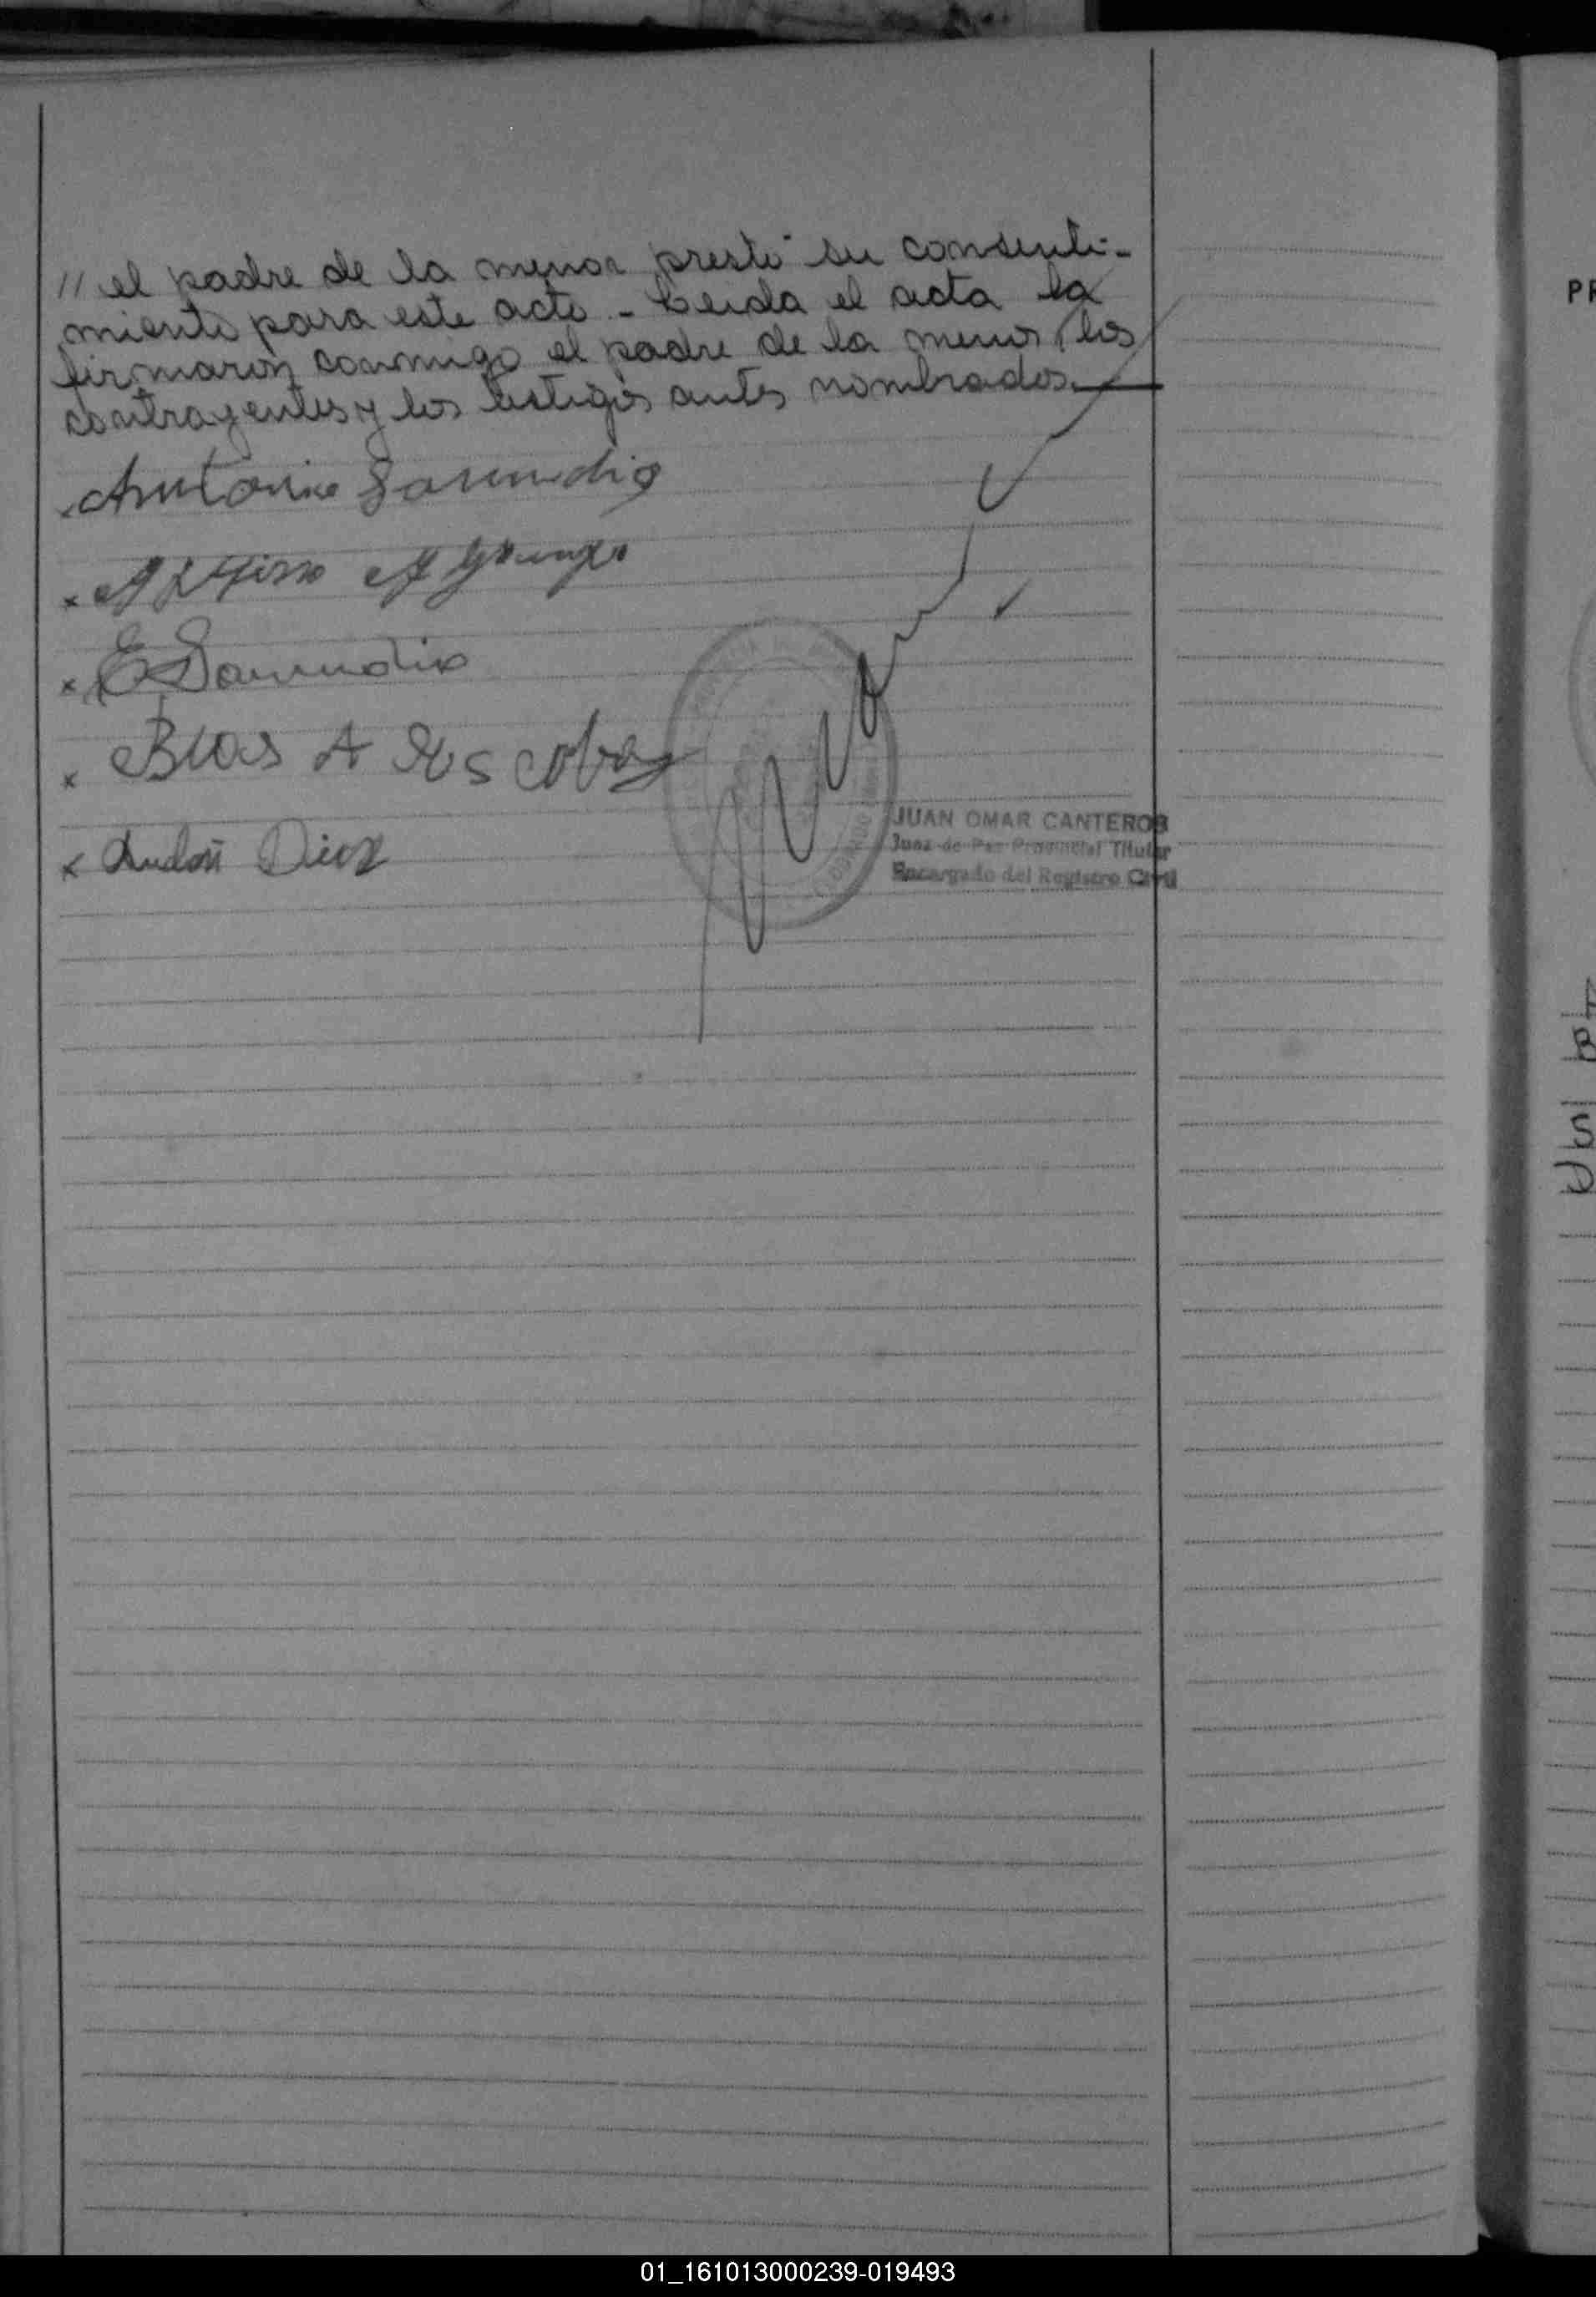 // el padre de la menor prestó su consenti-
miento para este acto - Leida el acta la
firmaron conmigo el padre de la menor, los
contrayentes y los testigos antes nombrados.
Antonio
x
x E
x Blas A Escobar
x Diaz
JUAN OMAR CANTEROS
Juez de Paz Provincial Titular
Encargado del Registro Civil
PR
01_161013000239-019493